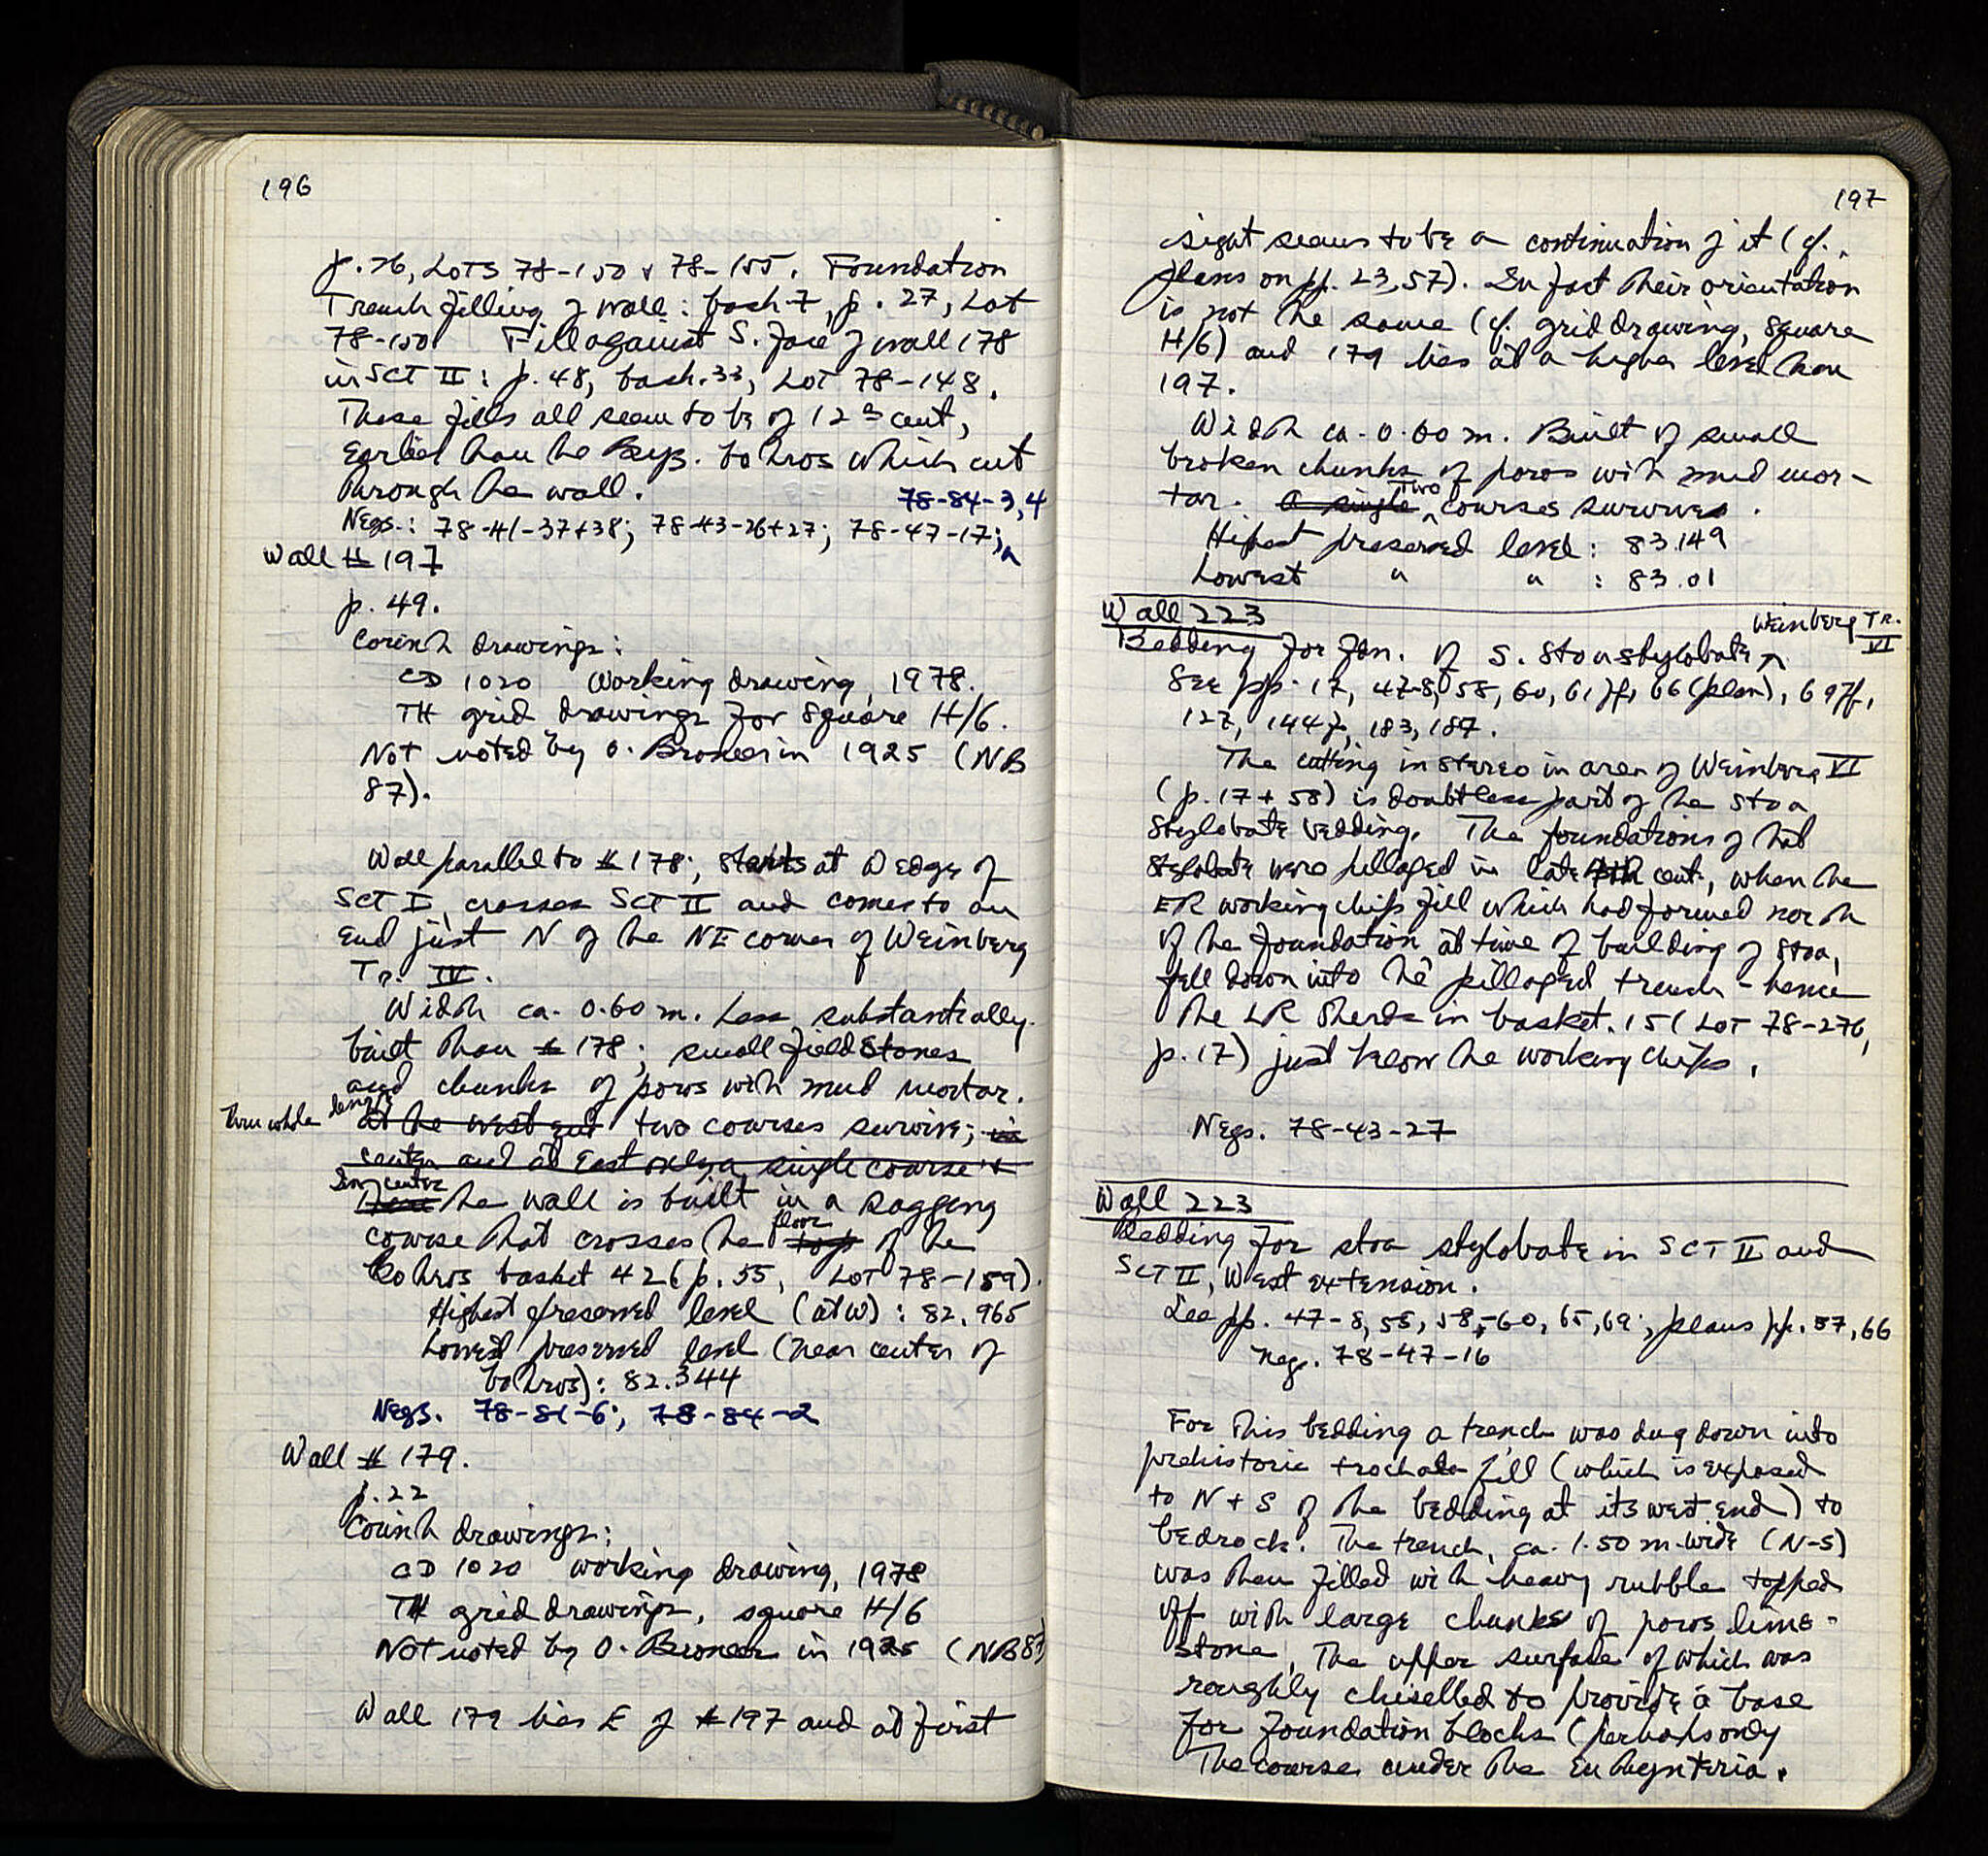 196
p. 26, LOTS 78-150 + 78-155. Foundation
Trench filling of wall: bask 7, p. 27, Lot
78-150 Fill against S. face of wall 178
in SCT II: p. 48, bask. 33, Lot 78-148.
These fills all seem to be of 12th cent,
Earlier than the Byz. bothros which cut
through the wall.
78-84-3,4
Negs.: 78-41-37+38; 78-43-26+27; 78-47-17;
Wall # 197
p. 49.
Corinth drawings:
CD 1020 Working drawing, 1978.
TH grid drawings for square H/6.
Not noted by O. Broneer in 1925 (NB
87).
Wall parallel to # 178; starts at W edge of
SCT I, crosses SCT II and comes to an
End just N of the NE corner of Weinberg
Tr. IV.
Width ca. 0.60 m. Less substantially
built than # 178; small field stones
and chunks of poros with mud mortar.
Thru whole length
at the west end two courses survive; in
center and at East only a single course +
In center
the wall is built in a sagging
course that crosses the floor top of the
bothros basket 42 (p. 55, LOT 78-159).
Highest preserved level (at W): 82.965
Lowest preserved level (near center of
bothros): 82.344
Negs. 78-81-6; 78-84-2
Wall # 179.
p. 22
Corinth drawings:
CD 1020 working drawing, 1978
TH grid drawings, square H/6
Not noted by O. Broneer in 1925 (NB 87)
Wall 179 lies E of # 197 and at first
197
sight seems to be a continuation of it (cf.
plans on pp. 23, 57). In fact their orientation
is not the same (cf. grid drawing, square
H/6) and 179 lies at a higher level than
197.
Width ca. 0.60 m. Built of small
broken chunks of poros with mud mor-
tar. a single Two courses survives.
Highest preserved level: 83.149
Lowest " " : 83.01
Wall 223
Weinberg Tr. VI
Bedding for fdn. of S. Stoa stylobate
See pp. 17, 47-8, 58, 60, 61 ff, 66 (plan), 69 ff,
127, 144 f, 183, 187.
The cutting in stereo in area of Weinberg VI
(p. 17 + 58) is doubtless part of the stoa
stylobate bedding. The foundations of that
stylobate were pillaged in late cent., when the
ER working chips fill which had formed north
of the foundation at time of building of stoa,
fell down into the pillaged trench - hence
the LR sherds in basket. 15 (LOT 78-276,
p. 17) just below the working chips.
Negs. 78-43-27
Wall 223
Bedding for stoa stylobate in SCT II and
SCT II, West extension.
See pp. 47-8, 55, 58-60, 65, 69; plans pp. 57, 66
neg. 78-47-16
For this bedding a trench was dug down into
prehistoric trochala fill (which is exposed
to N + S of the bedding at its west end) to
bedrock. The trench, ca. 1.50 m wide (N-S)
was then filled with heavy rubble topped
off with large chunks of poros lime-
stone, the upper surface of which was
roughly chiselled to provide a base
for foundation blocks (perhaps only
the course under the Euthynteria.